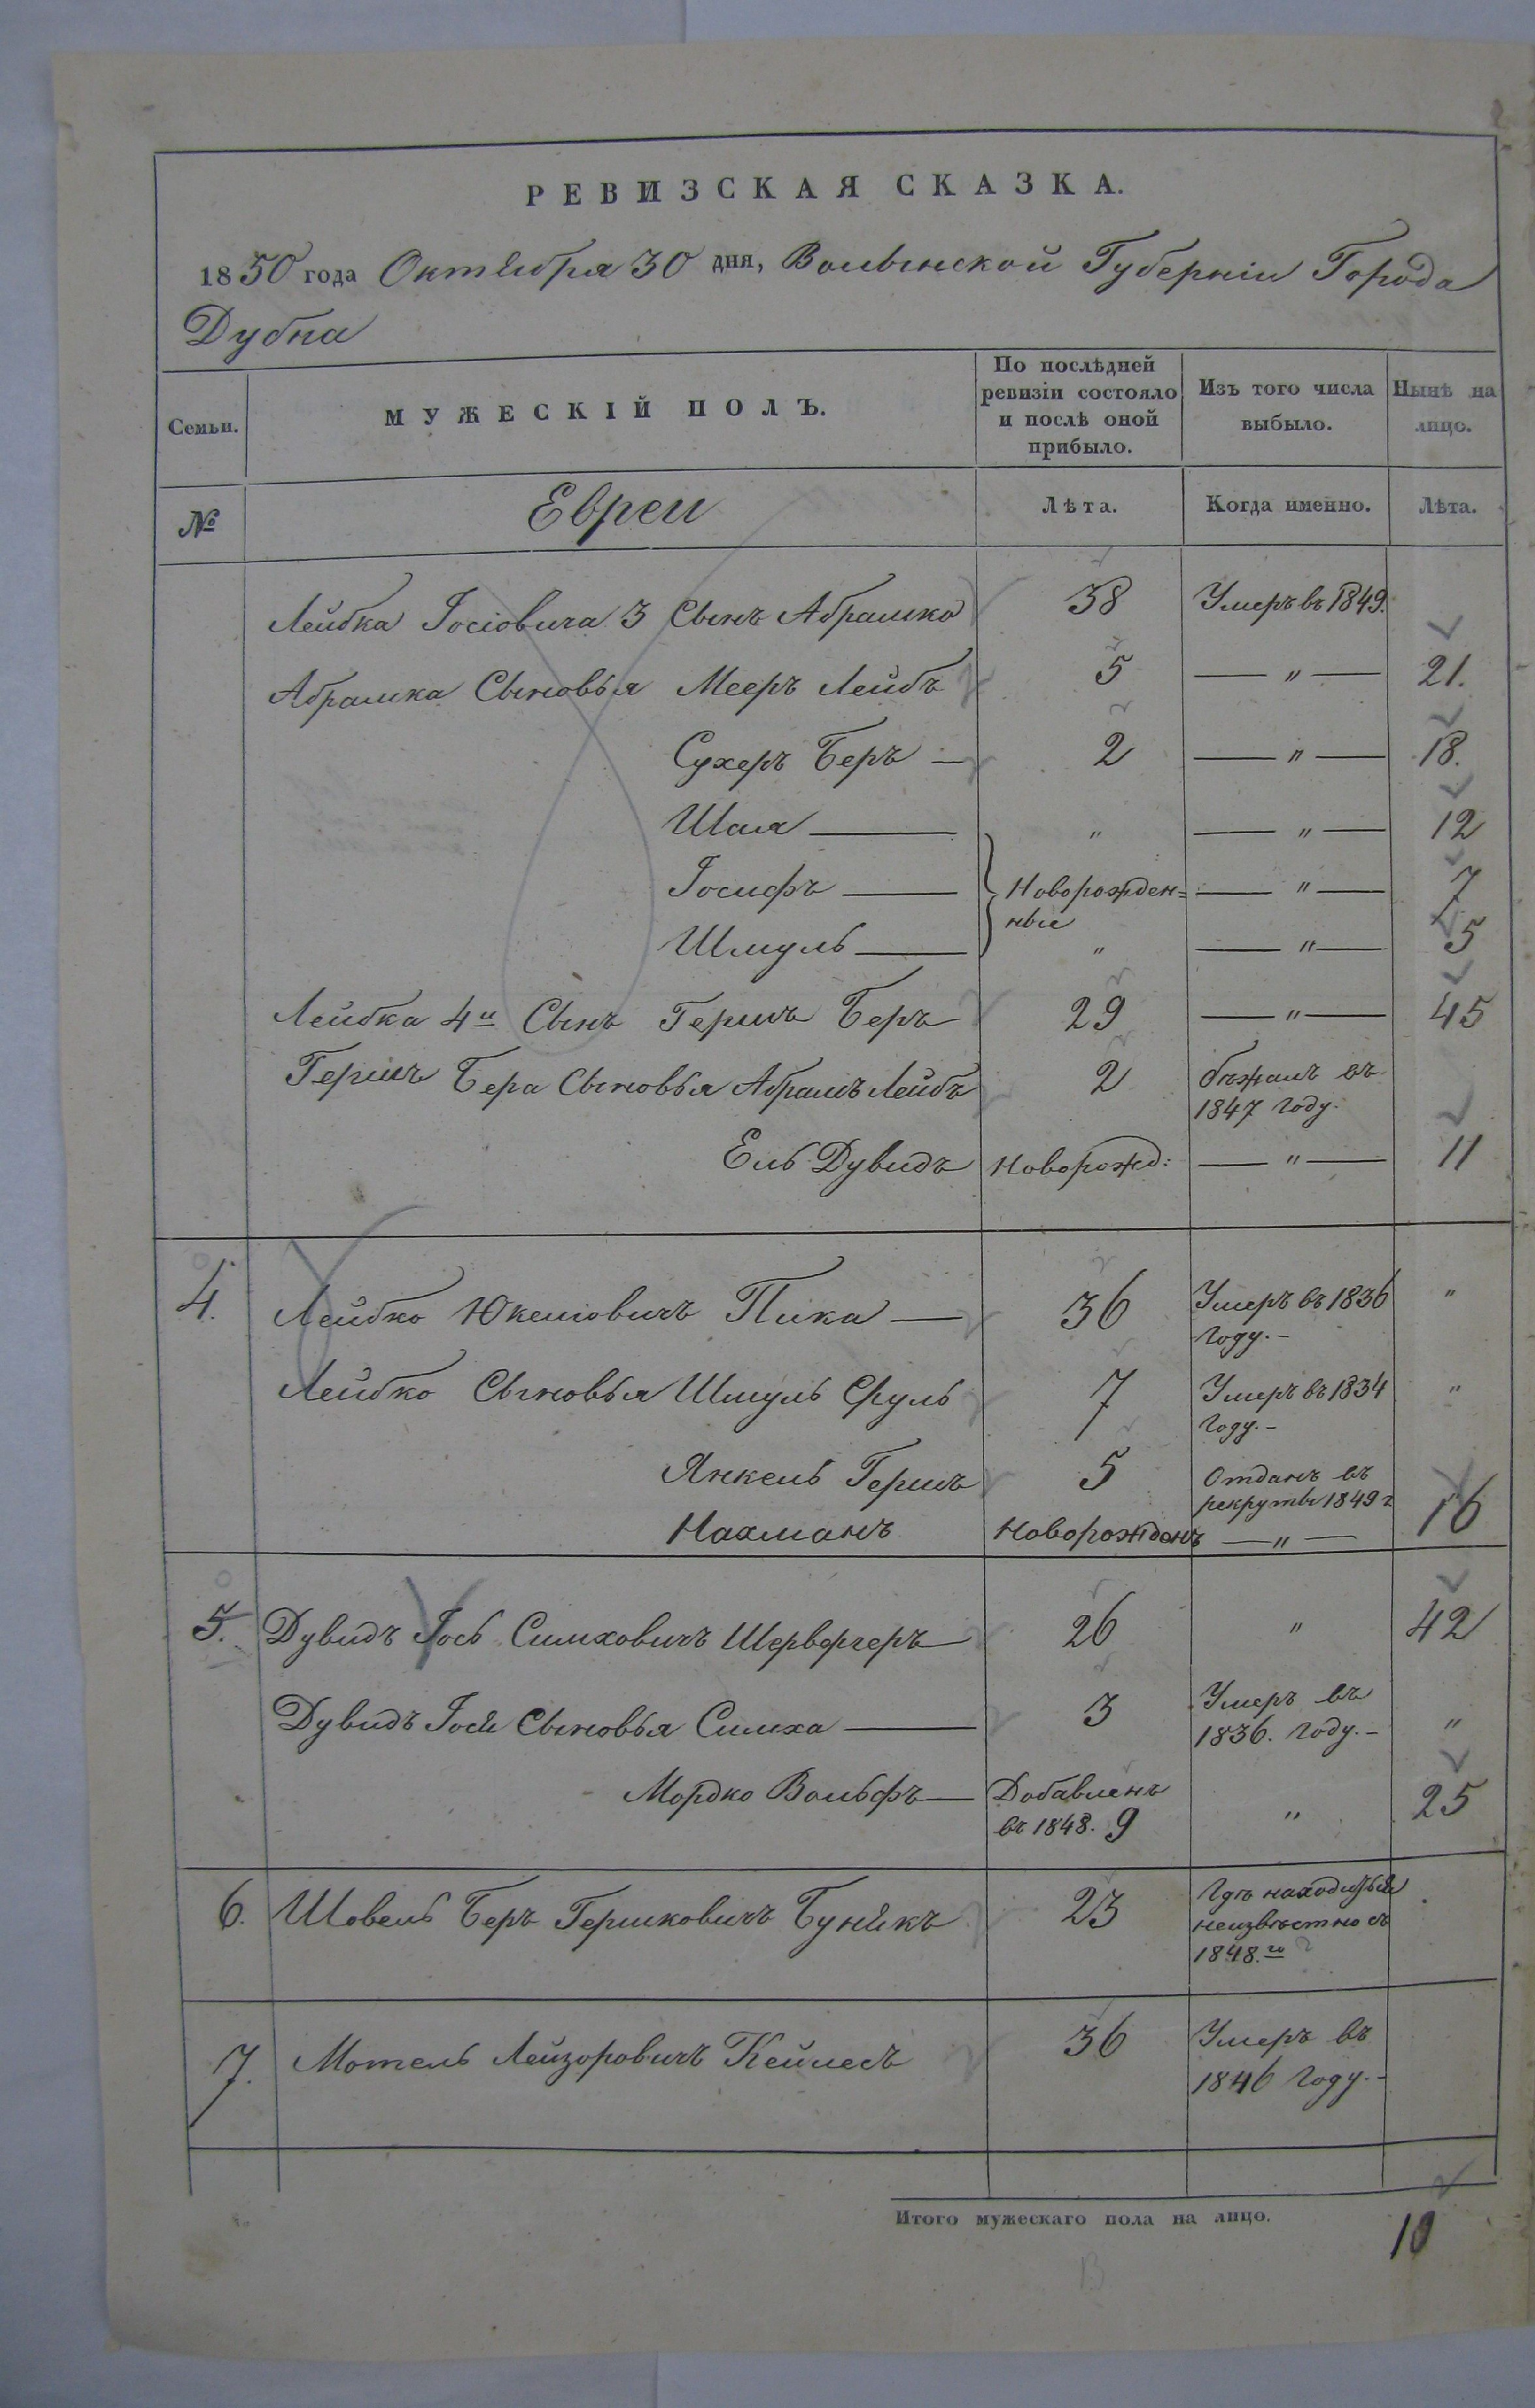 РЕВИЗСКАЯ СКАЗКА.
1850 года Октября 30 дня, Волынской Губерніи Города
Дубна
Семьи.
МУЖЕСКІЙ ПОЛЪ.
По послѣдней
ревизіи состояло
и послѣ оной
прибыло.
Изъ того числа
выбыло.
Нынѣ на
лицо.
№
Евреи
Лѣта.
Когда именно.
Лѣта.
Лейбка Іосіовича 3 Сынъ Абрамко 38 Умеръ въ 1849.
Абрамка Сыновья Мееръ Лейбъ 5 — " — 21.
Сухеръ Беръ — 2 — " — 18.
Шая — " — " — 12
Іосифъ — Новорожден= — " — 7
ные
Шмуль — " — " — 5
Лейбка 4й Сынъ Гершъ Беръ 29 — " — 45
Гершъ Бера Сыновья Абрамъ Лейбъ 2 бѣжалъ въ
1847 году.
Ель Дувидъ Новорожд: — " — 11
4. Лейбко Юкелювичъ Пика — 36 Умеръ въ 1836 "
году. –
Лейбко Сыновья Шмуль Сруль 7 Умеръ въ 1834 "
году. –
Янкель Гершъ 5 Отданъ въ
рекруты 1849 г
Нахманъ Новорожденъ — " — 16
5. Дувидъ Іось Симховичъ 26 " 42
Дувидъ Іося Сыновья Симха — 3 Умеръ въ
1836. году. – "
Мордко Вольфъ — Добавленъ
въ 1848. 9 " 25
6. Шовель Беръ Гершковичъ Бунякъ 23 Гдѣ находиться
неизвѣстно съ
1848.го
7. Мотель Лейзоровичъ Кейлесъ 36 Умеръ въ
1846 году. –
Итого мужескаго пола на лицо. 10